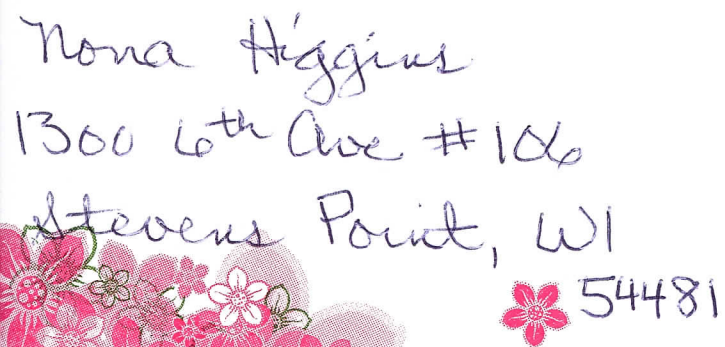 Nona Higgins
1300 6th Ave #106
Stevens Point, WI
54481